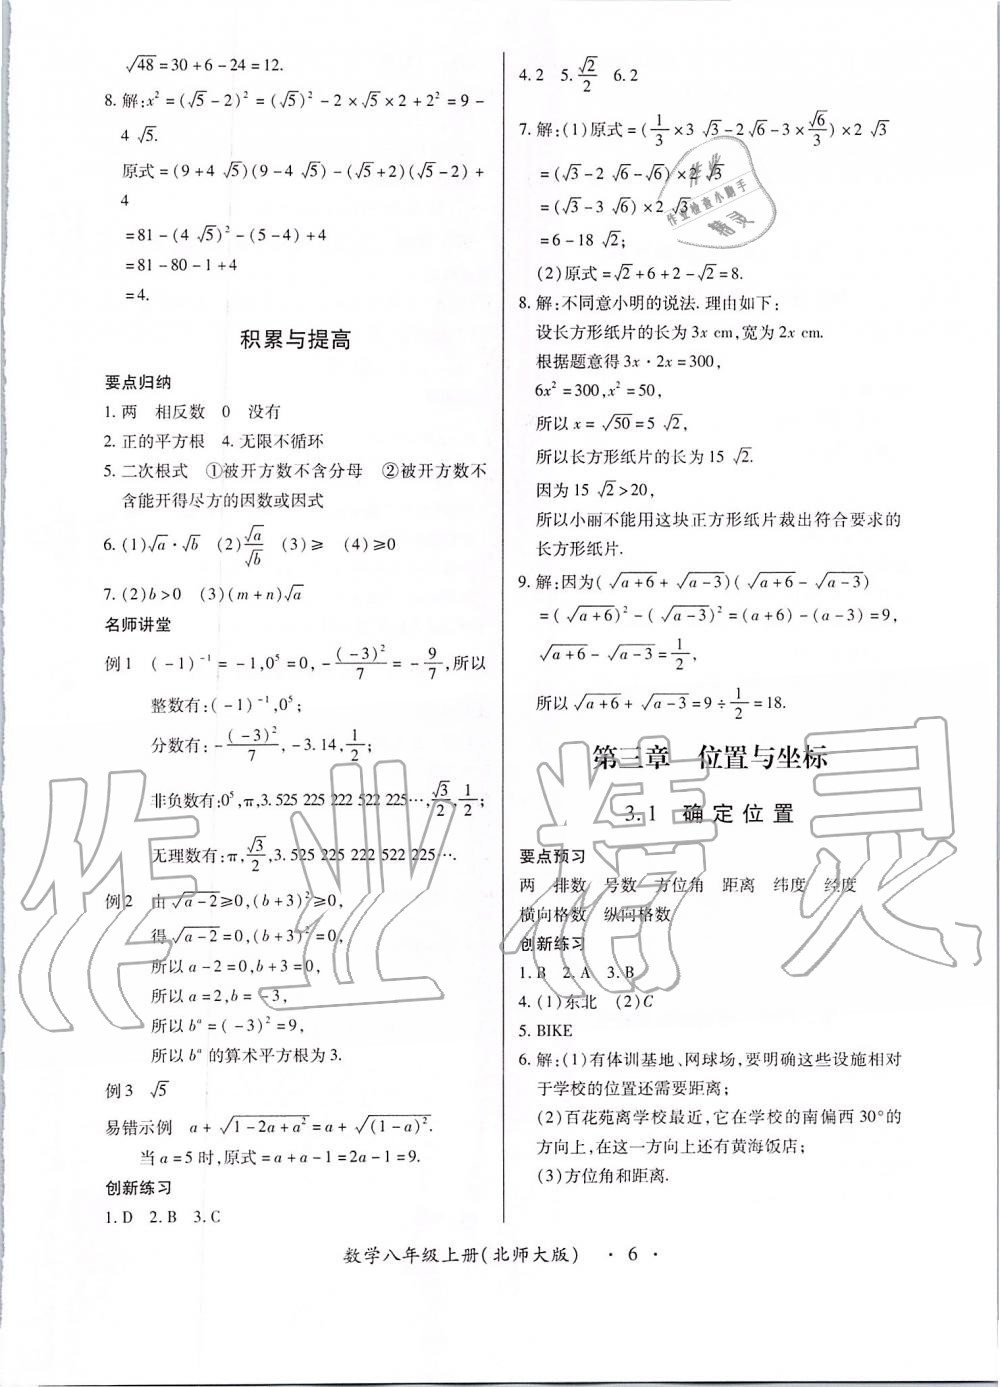 √48=30+6-24=12.
8. 解:x²=(√5-2)²=(√5)²-2×√5×2+2²=9-
4√5.
原式=(9+4√5)(9-4√5)-(√5+2)(√5-2)+
4
=81-(4√5)²-(5-4)+4
=81-80-1+4
=4.
积累与提高
要点归纳
1. 两 相反数 0 没有
2. 正的平方根 4. 无限不循环
5. 二次根式 ①被开方数不含分母 ②被开方数不
含能开得尽方的因数或因式
6. (1)√a·√b (2)√a/√b (3)≥ (4)≥0
7. (2)b>0 (3)(m+n)√a
名师讲堂
例1 (-1)⁻¹=-1,0⁵=0,-(-3)²/7=-9/7,所以
整数有:(-1)⁻¹,0⁵;
分数有:-(-3)²/7,-3.14,1/2;
非负数有:0⁵,π,3.525 225 222 522 225…,√3/2,1/2;
无理数有:π,√3/2,3.525 225 222 522 225….
例2 由√(a-2)≥0,(b+3)²≥0,
得√(a-2)=0,(b+3)²=0,
所以a-2=0,b+3=0,
所以a=2,b=-3,
所以bᵃ=(-3)²=9,
所以bᵃ的算术平方根为3.
例3 √5
易错示例 a+√(1-2a+a²)=a+√((1-a)²).
当a=5时,原式=a+a-1=2a-1=9.
创新练习
1. D 2. B 3. C
4. 2 5. √2/2 6. 2
7. 解:(1)原式=(1/3×3√3-2√6-3×√6/3)×2√3
=(√3-2√6-√6)×2√3
=(√3-3√6)×2√3
=6-18√2;
(2)原式=√2+6+2-√2=8.
8. 解:不同意小明的说法. 理由如下:
设长方形纸片的长为3x cm,宽为2x cm.
根据题意得3x·2x=300,
6x²=300,x²=50,
所以x=√50=5√2,
所以长方形纸片的长为15√2.
因为15√2>20,
所以小丽不能用这块正方形纸片裁出符合要求的
长方形纸片.
9. 解:因为(√(a+6)+√(a-3))(√(a+6)-√(a-3))
=(√(a+6))²-(√(a-3))²=(a+6)-(a-3)=9,
√(a+6)-√(a-3)=1/2,
所以√(a+6)+√(a-3)=9÷1/2=18.
第三章 位置与坐标
3.1 确定位置
要点预习
两 排数 号数 方位角 距离 纬度 经度
横向格数 纵向格数
创新练习
1. B 2. A 3. B
4. (1)东北 (2)C
5. BIKE
6. 解:(1)有体训基地、网球场,要明确这些设施相对
于学校的位置还需要距离;
(2)百花苑离学校最近,它在学校的南偏西30°的
方向上,在这一方向上还有黄海饭店;
(3)方位角和距离.
数学八年级上册(北师大版) ·6·
作业
作业检查小助手
精灵
作业精灵